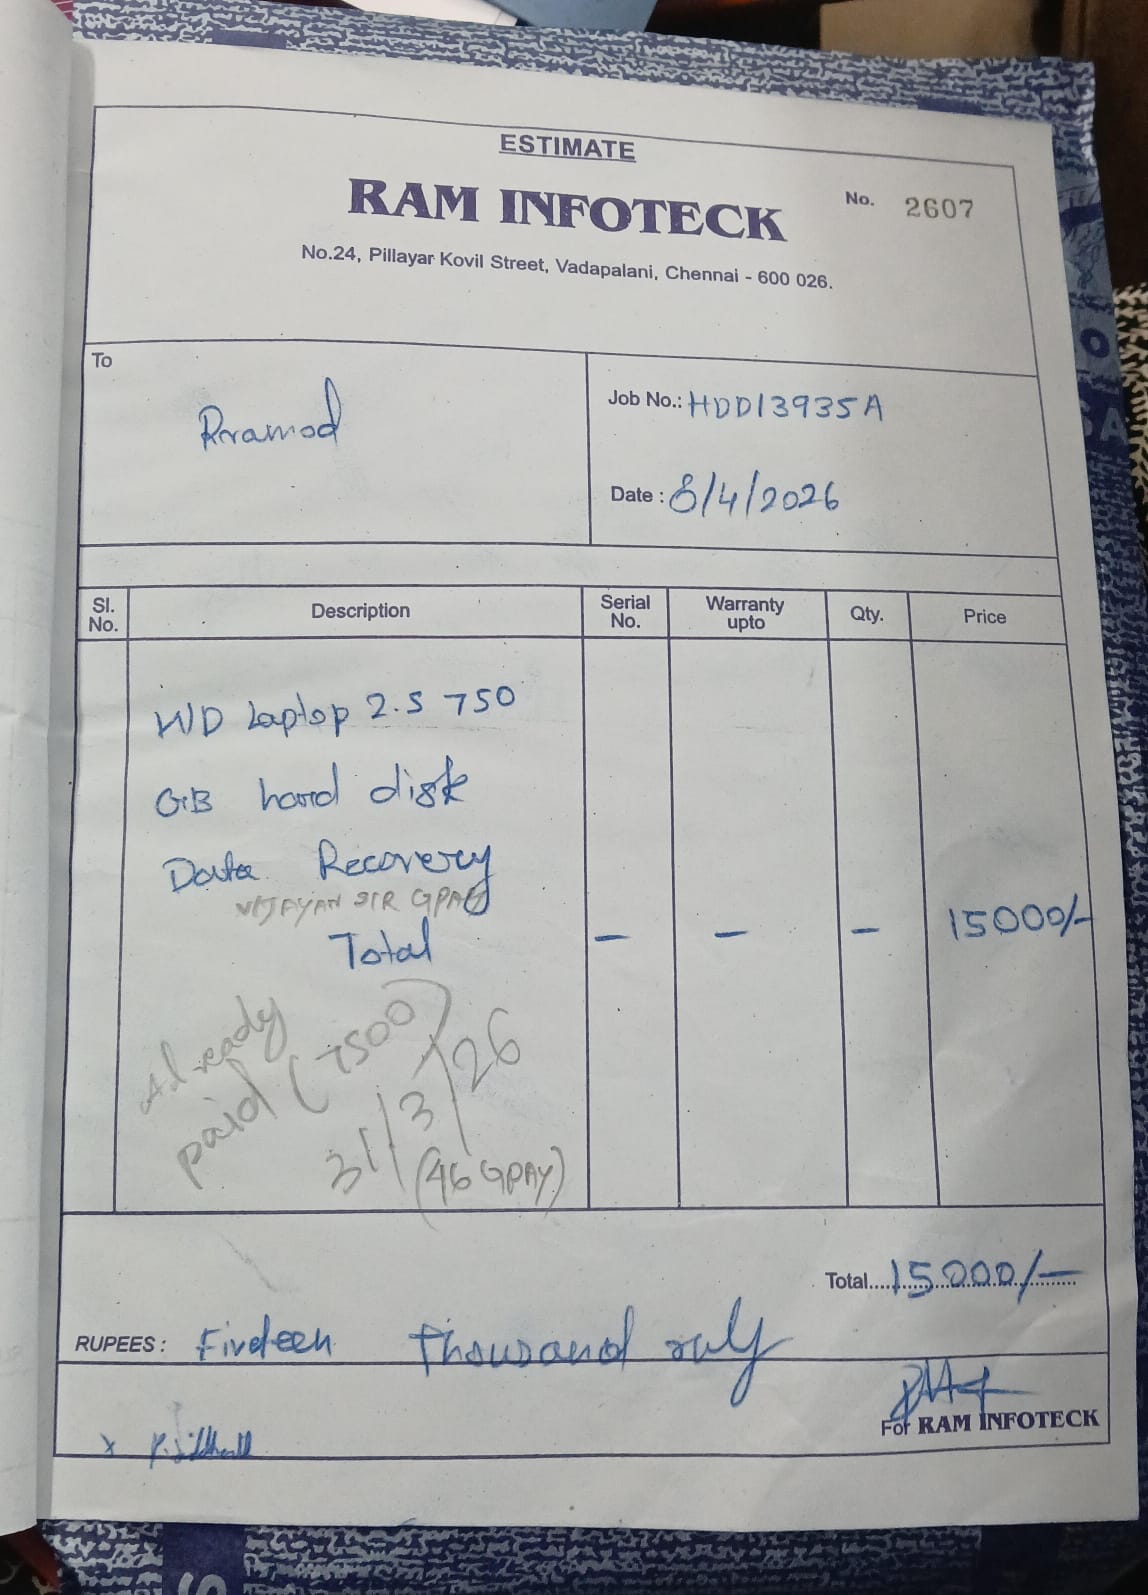 ESTIMATE
RAM INFOTECK
No. 2607
No.24, Pillayar Kovil Street, Vadapalani, Chennai - 600 026.
To
Pramod
Job No.: HDD13935A
Date : 8/4/2026
Sl. No. Description Serial No. Warranty upto Qty. Price
WD Laptop 2.5 750
GB hard disk
Data Recovery
VIJAYAN SIR GPAY
Total - - - 15000/-
Already
paid (7500)
31/3/26
(46 GPAY)
Total....15000/-
RUPEES : Fiveteen thousand only
For RAM INFOTECK
x